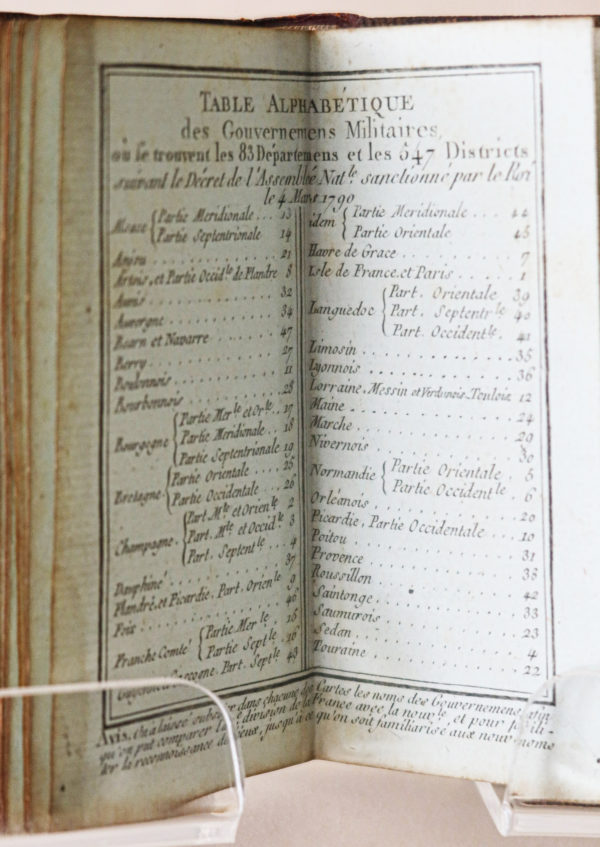 TABLE ALPHABÉTIQUE
des Gouvernemens Militaires,
où se trouvent les 83 Départemens et les 547 Districts
suivant le Décret de l'Assemblée Nat.le sanctionné par le Roi
le 4 Mars 1790
Alsace { Partie Meridionale ... 13
Partie Septentrionale 14
Anjou ... 21
Artois, et Partie Occid.le de Flandre 8
Aunis ... 32
Auvergne ... 34
Bearn et Navarre ... 47
Berry ... 27
Boulonnois ... 11
Bourbonnois ... 28
Bourgogne { Partie Mer.le et Or.le .. 17
Partie Meridionale .. 18
Partie Septentrionale 19
Bretagne { Partie Orientale .... 25
Partie Occidentale ... 26
Champagne { Part. M.le et Orien.le 2
Part. M.le et Occid.le 3
Part. Septent.le ... 4
Dauphiné ... 37
Flandre, et Picardie, Part. Orien.le 9
Foix ... 46
Franche Comté { Partie Mer.le .. 15
Partie Sept.le .. 16
Gascogne, Part. Sept.le 43
idem { Partie Meridionale .... 44
Partie Orientale 45
Havre de Grace ... 7
Isle de France, et Paris ... 1
Languedoc { Part. Orientale 39
Part. Septentr.le 40
Part. Occident.le . 41
Limosin ... 35
Lyonnois ... 36
Lorraine, Messin et Verdunois, Toulois 12
Maine ... 24
Marche ... 29
Nivernois ... 30
Normandie { Partie Orientale . 5
Partie Occident.le . 6
Orléanois ... 20
Picardie, Partie Occidentale ... 10
Poitou ... 31
Provence ... 38
Roussillon ... 42
Saintonge ... 33
Saumurois ... 23
Sedan ... 4
Touraine ... 22
AVIS. On a laissé subsister dans chacune des Cartes les noms des Gouvernemens, afin
qu'on put comparer la division de la France avec la nouv.le, et pour facili-
ter la reconnoissance des lieux, jusqu'à ce qu'on soit familiarisé aux nouv. noms